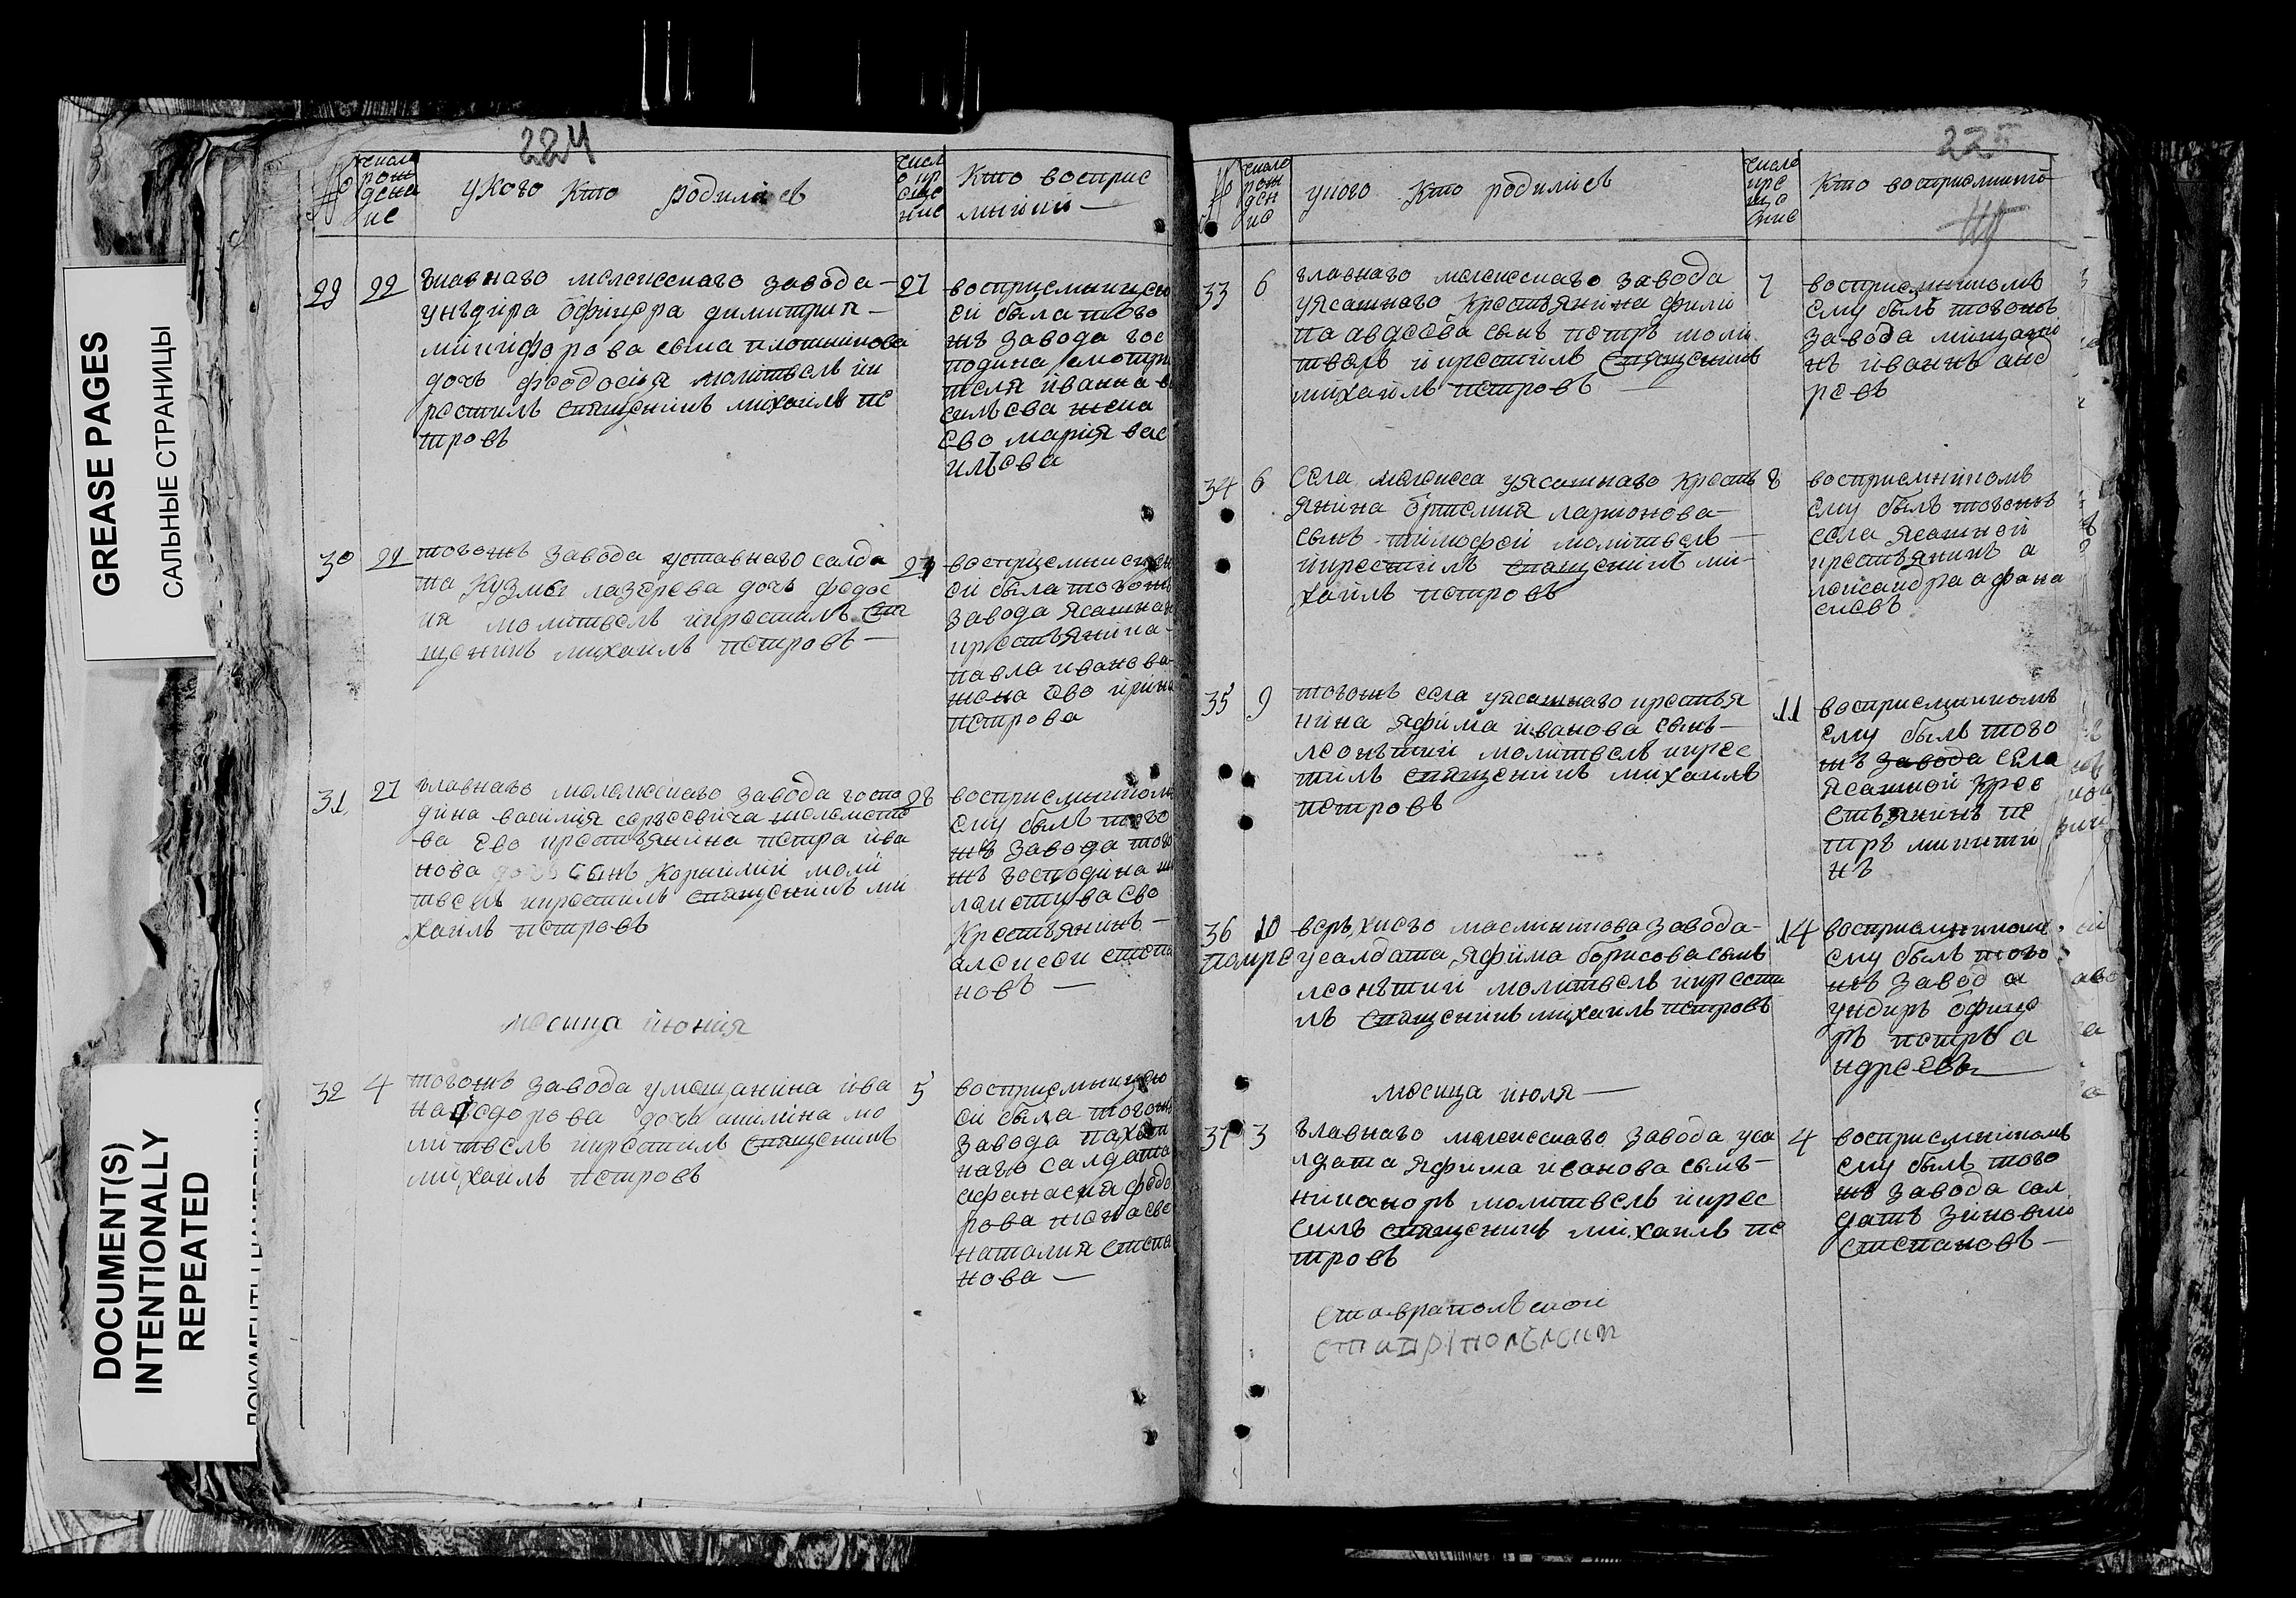 GREASE PAGES
САЛЬНЫЕ СТРАНИЦЫ
DOCUMENT(S)
INTENTIONALLY
REPEATED
224
№
число
рож
дена
ие
у кого кто родилися
число
кр
еще
ние
Кто восприе
мники
29 22
главнаго мелекескаго завода
унъдира офицера димитрия
микифорова сына плотникова
дочь феодосия молитвелъ ик
рестилъ священикъ михаилъ пе
тровъ
27
восприемницею
ей была того
жъ завода гос
подина смотри
теля ивана ва
сильева жена
ево мария вас
ильева
30 22
тогожъ завода уставнаго салда
та кузмы лазерева дочь федос
ия молитвелъ икрестилъ свя
щеникъ михаилъ петровъ
27
восприемницею
ей была тогожъ
завода ясашнаго
крестьянина
павла иванова
жена ево ирина
петрова
31 27
главнаго мелекескаго завода госпо
дина василия сергеевича
ва ево крестьянина петра ива
нова сынъ корнилий моли
твелъ икрестилъ священикъ ми
хаилъ петровъ
28
восприемникомъ
ему былъ того
жъ завода того
жъ господина
ево
крестьянинъ
алексеи степа
новъ
месица июния
32 4
тогожъ завода умещанина ива
на федорова дочь акилина мо
литвелъ икрестилъ священикъ
михаилъ петровъ
5
восприемницею
ей была тогожъ
завода
наго салдата
афанасия федо
рова жена ево
наталия степа
нова
225
№
число
рож
ден
ие
у кого кто родилися
число
кре
ще
ние
Кто восприемники
33 6
главнаго мелекескаго завода
уясашнаго крестьянина фили
па авдеева сынъ петръ моли
твелъ икрестилъ священикъ
михаилъ петровъ
7
восприемникомъ
ему былъ тогожъ
завода мищани
нъ иванъ анд
реевъ
34 6
села мелекеса уясашнаго кресть
янина ортемия ларионова
сынъ тимофей молитвелъ
икрестилъ священикъ ми
хаилъ петровъ
8
восприемникомъ
ему былъ тогожъ
села ясашной
крестьянинъ а
лександра афана
сиевъ
35 9
тогожъ села уясашнаго крестья
нина яфима иванова сынъ
леонътий молитвелъ икрес
тилъ священикъ михаилъ
петровъ
11
восприемникомъ
ему былъ того
жъ завода села
ясашной крес
стьянинъ пе
тръ микити
нъ
36 10
помре
верьхнего масленикова завода
усалдата яфима борисова сынъ
леонътий молитвелъ икрести
лъ священикъ михаилъ петровъ
14
восприемникомъ
ему былъ того
жъ завода
ундиръ офице
ръ петръ а
ндреевъ
месица июля
37 3
главнаго мелекескаго завода уса
лдата яфима иванова сынъ
никаноръ молитвелъ икрес
силъ священикъ михаилъ пе
тровъ
4
восприемникомъ
ему былъ того
жъ завода сал
датъ зиновии
степановъ
ставрапольской